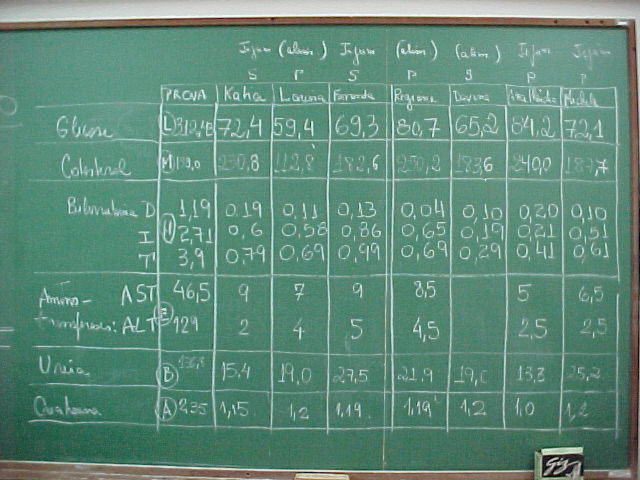 Jejum (alim) Jejum (alim) (alim) Jejum Jejum
S P S P S P P
PROVA Katia Regiane
Glicose L 312,4 72,4 59,4 69,3 80,7 65,2 84,2 72,1
Colesterol 230,8 112,8 182,6 250,2 183,6 240,0 187,7
Bilirrubina D 1,19 0,19 0,11 0,13 0,04 0,10 0,20 0,10
I H 2,71 0,6 0,58 0,86 0,65 0,19 0,21 0,51
T 3,9 0,79 0,69 0,99 0,69 0,29 0,41 0,61
Amino- AST 46,5 9 7 9 8,5 5 6,5
transferases: ALT 129 2 4 5 4,5 2,5 2,5
Uréia B 15,4 19,0 27,5 21,9 13,3 25,2
Creatinina A 2,35 1,15 1,2 1,19 1,19 1,2 1,0 1,2
Giz